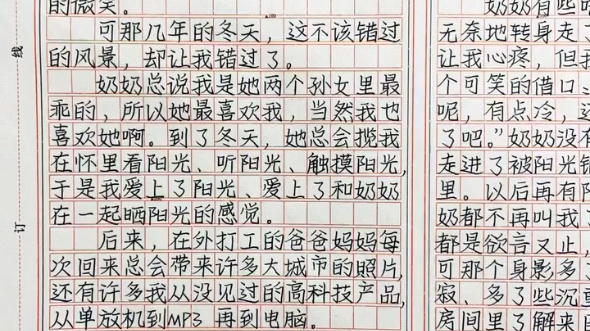 的微笑。
可那几年的冬天，这不该错过
的风景，却让我错过了。
奶奶总说我是她两个孙女里最
乖的，所以她最喜欢我，当然我也
喜欢她啊。到了冬天，她总会揽我
在怀里看阳光、听阳光、触摸阳光，
于是我爱上了阳光、爱上了和奶奶
在一起晒阳光的感觉。
后来，在外打工的爸爸妈妈每
次回来总会带来许多大城市的照片，
还有许多我从没见过的高科技产品，
从单放机到MP3再到电脑。
线
订
奶奶有些
无奈地转身走、
让我心疼，但我
个可笑的借口、
呢，有点冷，还
了吧。”奶奶没有
走进了被阳光
里。以后再有阳
奶都不再叫我了
都是欲言又止，
可那个身影多了
寂、多了些沉
房间里了解来自